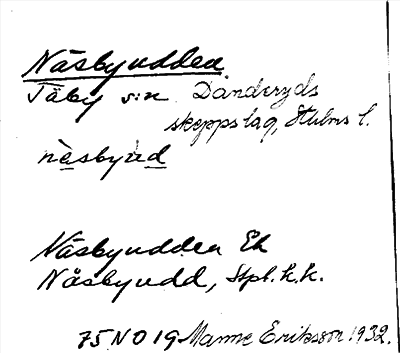 Näsbyudden
Täby s:n Danderyds
skeppslag, Sthlms l.
nèsbyud
Näsbyudden Ek
Näsbyudd, Stpl. k.k.
75 NO 19 Manne Eriksson 1932.